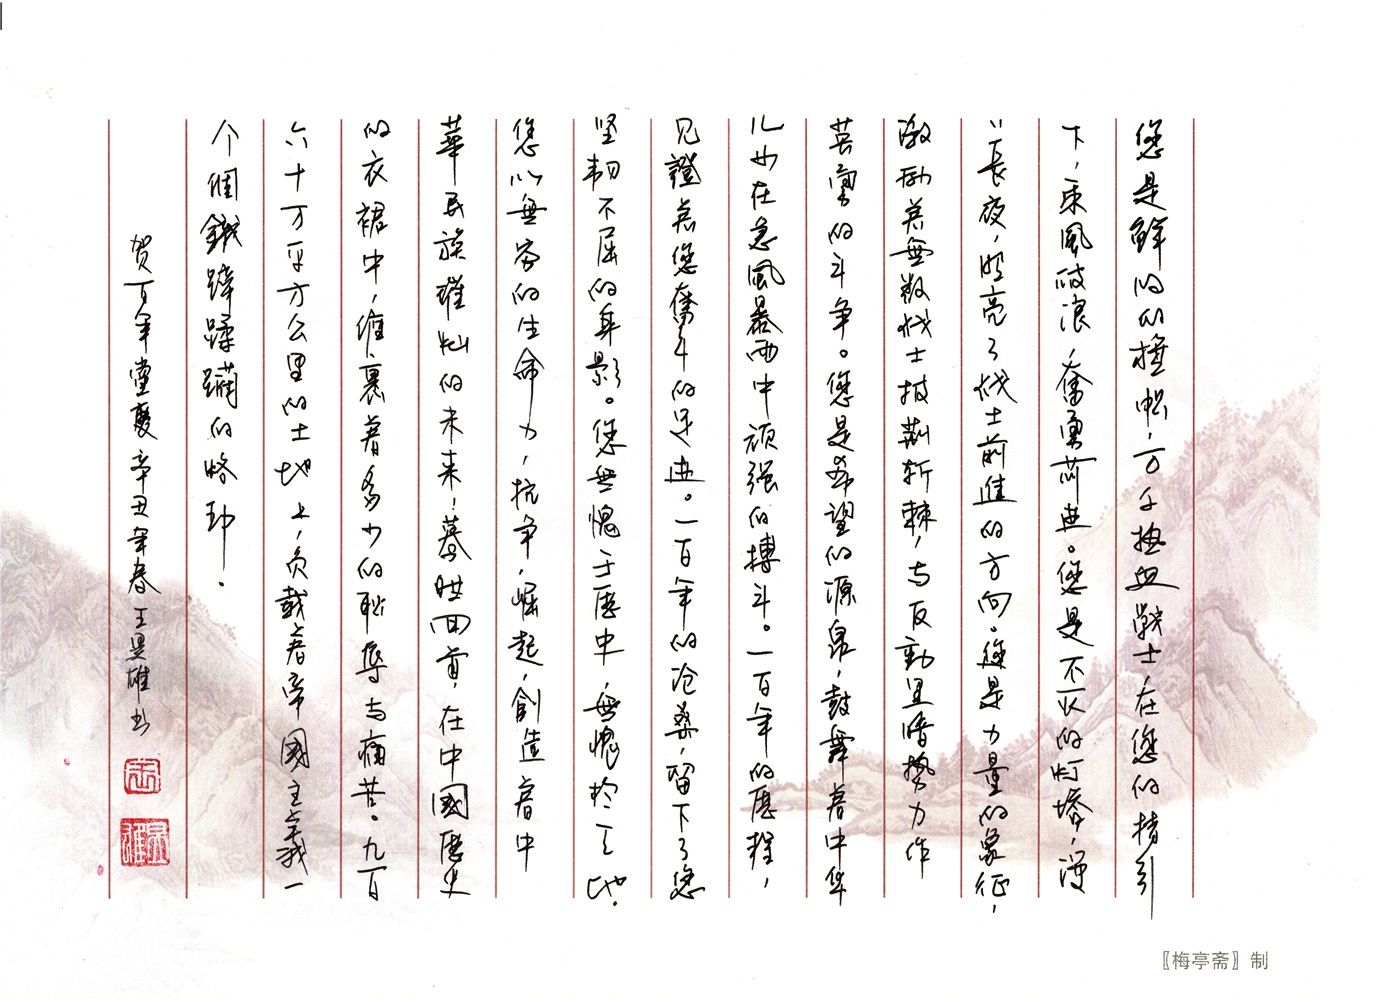 您是鮮明的旗帜，万千热血戰士，在您的指引
下，乘風破浪，奮勇前进。您是不灭的灯塔，漫
〃長夜，照亮了战士前進的方向。您是力量的象征，
激励着無数战士披荆斩棘，与反動黑暗势力作
英勇的斗争。您是希望的源泉，鼓舞着中华
儿女在急風暴雨中顽强的搏斗。一百年的歷程，
见證着您奮斗的足迹。一百年的沧桑，留下了您
坚韧不屈的身影。您無愧于历史，無愧於天地。
您以無穷的生命力，抗争，崛起，創造着中
華民族璀灿的未来！蓦然回首，在中國歷史
的衣裙中，缠裹着多少的耻辱与痛苦。九百
六十万平方公里的土地上，负载着帝國主義一
个個鐵蹄蹂躏的烙印。
贺百年堂慶 辛丑年春 王昱雄书
王
昱雄
〖梅亭斋〗制